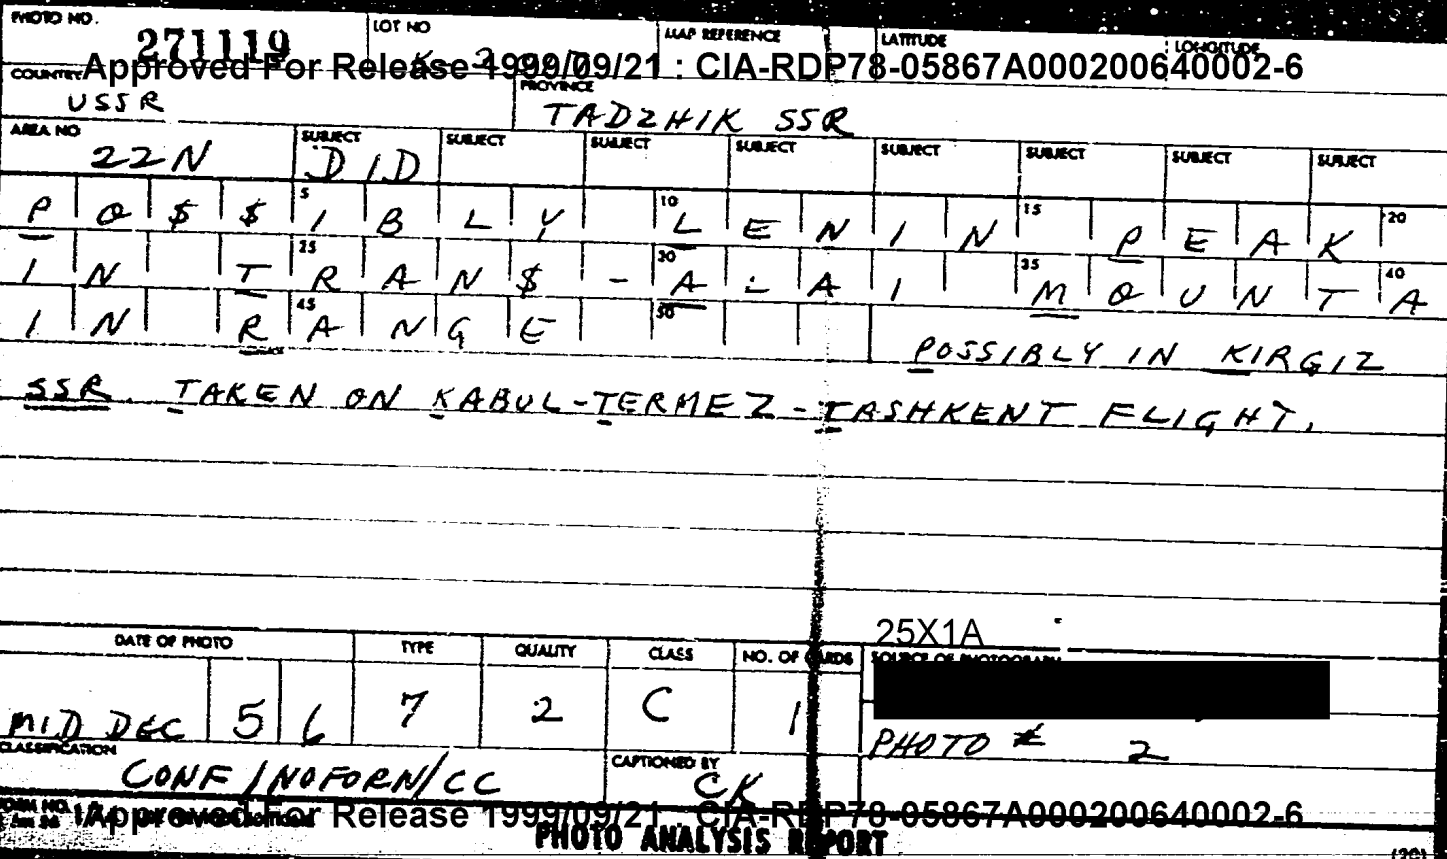 PHOTO NO. LOT NO MAP REFERENCE LATITUDE LONGITUDE
271119
Approved For Release 1999/09/21 : CIA-RDP78-05867A000200640002-6
COUNTRY PROVINCE
USSR TADZHIK SSR
AREA NO SUBJECT SUBJECT SUBJECT SUBJECT SUBJECT SUBJECT SUBJECT SUBJECT
22N DID
5 10 15 20
PO$$IBLY LENIN PEAK
25 30 35 40
IN TRAN$-ALAI MOUNTA
45 50
IN RANGE POSSIBLY IN KIRGIZ
SSR. TAKEN ON KABUL-TERMEZ-TASHKENT FLIGHT.
25X1A
DATE OF PHOTO TYPE QUALITY CLASS NO. OF CARDS SOURCE OF PHOTOGRAPH
MID DEC 5 6 7 2 C 1
PHOTO # 2
CLASSIFICATION CAPTIONED BY
CONF/NOFORN/CC CK
FORM NO.
Approved For Release 1999/09/21 : CIA-RDP78-05867A000200640002-6
PHOTO ANALYSIS REPORT
(20)